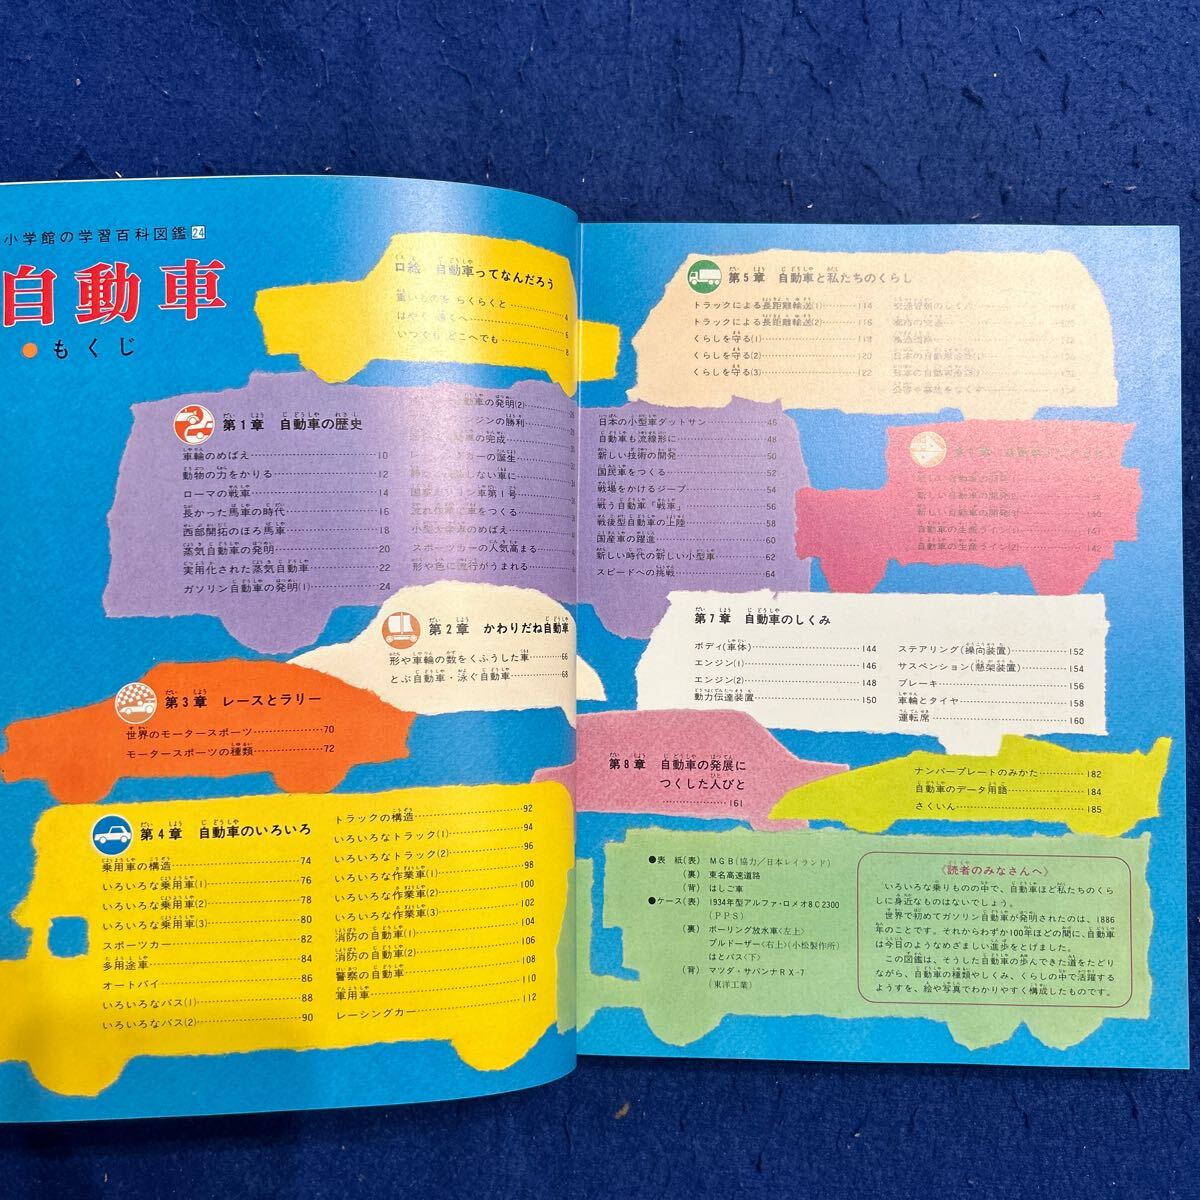 小学館の学習百科図鑑24
自動車
●もくじ
口絵 自動車ってなんだろう
重いものを らくらくと 4
はやく 遠くへ 6
いつでも どこへでも 8
第1章 自動車の歴史
車輪のめばえ 10
動物の力をかりる 12
ローマの戦車 14
長かった馬車の時代 16
西部開拓のほろ馬車 18
蒸気自動車の発明 20
実用化された蒸気自動車 22
ガソリン自動車の発明(1) 24
自動車の発明(2)
ジンの勝利
の完成
カーの誕生
しない車に
国産ガソリン車第1号
流れ作業で車をつくる
小型大衆車のめばえ
スポーツカーの人気高まる
形や色に流行がうまれる
日本の小型車ダットサン 46
自動車も流線形に 48
新しい技術の開発 50
国民車をつくる 52
戦場をかけるジープ 54
戦う自動車「戦車」 56
戦後型自動車の上陸 58
国産車の躍進 60
新しい時代の新しい小型車 62
スピードへの挑戦 64
第2章 かわりだね自動車
形や車輪の数をくふうした車 66
とぶ自動車・泳ぐ自動車 68
第3章 レースとラリー
世界のモータースポーツ 70
モータースポーツの種類 72
第4章 自動車のいろいろ
乗用車の構造 74
いろいろな乗用車(1) 76
いろいろな乗用車(2) 78
いろいろな乗用車(3) 80
スポーツカー 82
多用途車 84
オートバイ 86
いろいろなバス(1) 88
いろいろなバス(2) 90
トラックの構造 92
いろいろなトラック(1) 94
いろいろなトラック(2) 96
いろいろな作業車(1) 98
いろいろな作業車(2) 100
いろいろな作業車(3) 102
消防の自動車(1) 104
消防の自動車(2) 106
警察の自動車 108
軍用車 110
レーシングカー 112
第5章 自動車と私たちのくらし
トラックによる長距離輸送(1) 114
トラックによる長距離輸送(2) 116
くらしを守る(1) 118
くらしを守る(2) 120
くらしを守る(3) 122
交通管制のしくみ
都市の交通
高速道路
日本の自動車産業(1)
新しい自動車の開発
新しい自動車の開発
自動車の生産ライン(1) 141
自動車の生産ライン(2) 142
第7章 自動車のしくみ
ボディ(車体) 144
エンジン(1) 146
エンジン(2) 148
動力伝達装置 150
ステアリング(操向装置) 152
サスペンション(懸架装置) 154
ブレーキ 156
車輪とタイヤ 158
運転席 160
第8章 自動車の発展に
つくした人びと
161
ナンバープレートのみかた 182
自動車のデータ用語 184
さくいん 185
●表 紙(表) MGB(協力/日本レイランド)
(裏) 東名高速道路
(背) はしご車
●ケース(表) 1934年型アルファ・ロメオ8C2300
(PPS)
(裏) ボーリング放水車〈左上〉
ブルドーザー〈右上〉(小松製作所)
はとバス〈下〉
(背) マツダ・サバンナRX-7
(東洋工業)
〈読者のみなさんへ〉
いろいろな乗りものの中で、自動車ほど私たちのくら
しに身近なものはないでしょう。
世界で初めてガソリン自動車が発明されたのは、1886
年のことです。それからわずか100年ほどの間に、自動車
は今日のようなめざましい進歩をとげました。
この図鑑は、そうした自動車の歩んできた道をたどり
ながら、自動車の種類やしくみ、くらしの中で活躍する
ようすを、絵や写真でわかりやすく構成したものです。